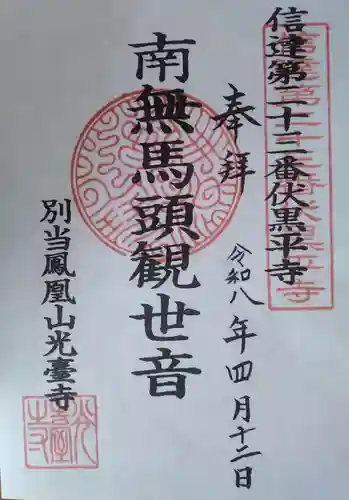 信達第二十三番伏黒平寺
奉拝
令和八年四月十二日
南無馬頭観世音
別当鳳凰山光臺寺
光臺寺